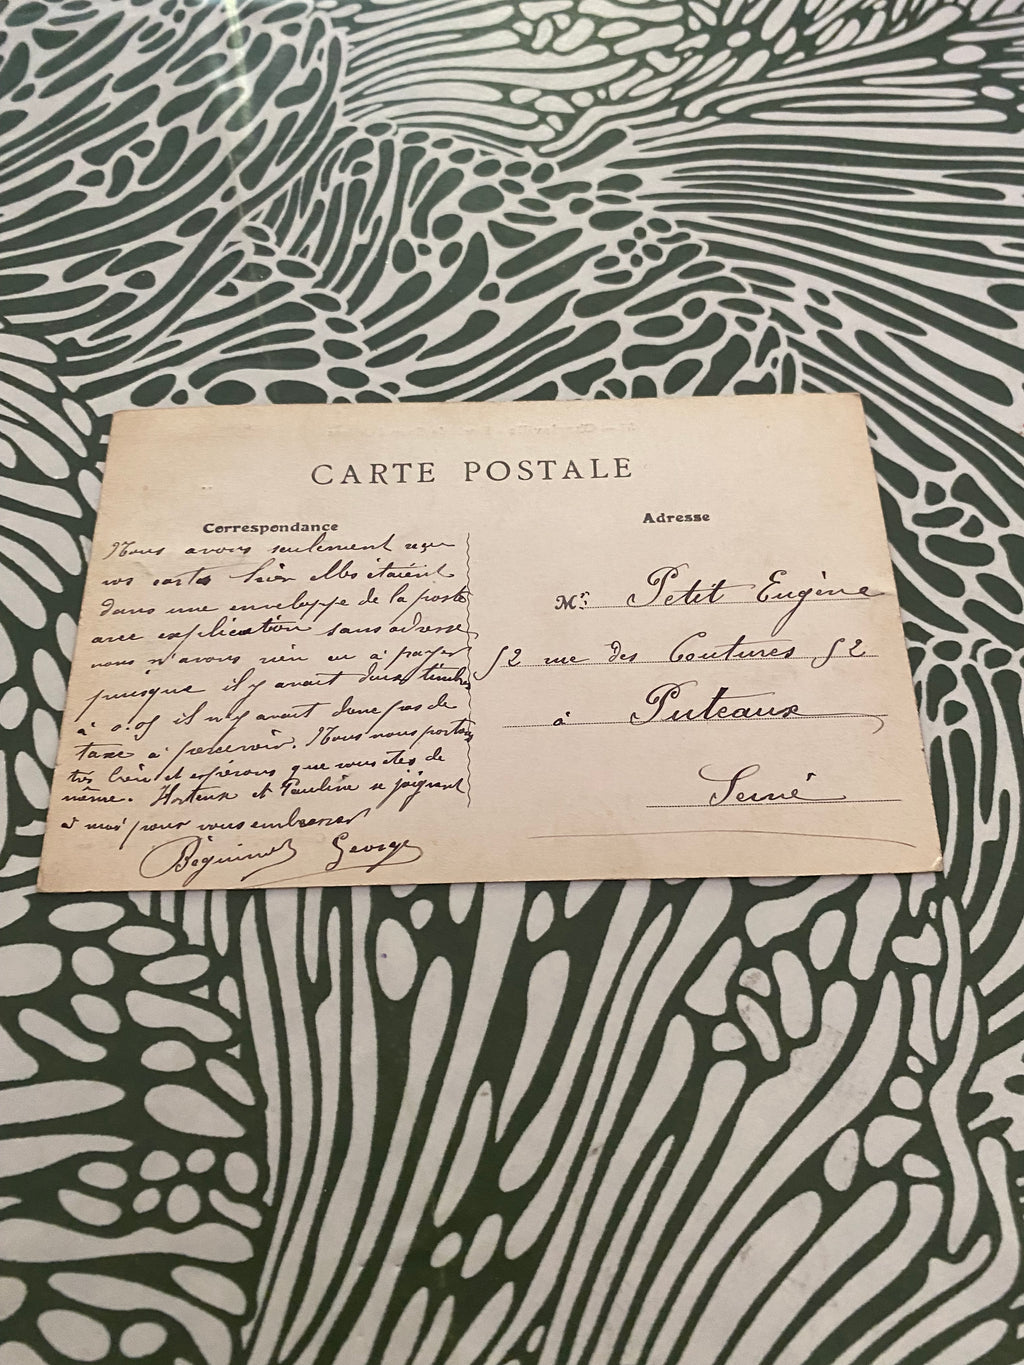 CARTE POSTALE
Correspondance
Nous avons seulement reçu
vos cartes hier elles étaient
dans une enveloppe de la poste
avec explication sans adresse
nous n'avons rien eu à payer
puisque il y avait deux timbres
à 0.05 il n'y avait donc pas de
taxe à percevoir. Nous nous portons
très bien et espérons que vous êtes de
même. Hortense et Pauline se joignent
à moi pour vous embrasser
George
Adresse
Mr: Petit Eugène
52 rue des Coutures 52
à Puteaux
Seine